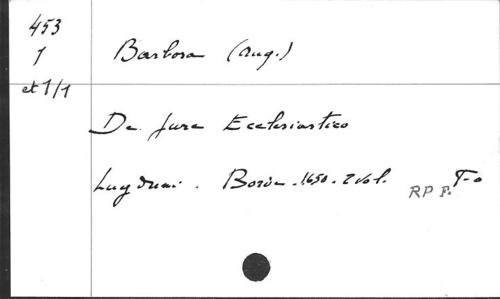 453
1
et 1/1
Barbosa (Aug.)
De Jure Ecclesiastico
Lugduni. Borde. 1650. 2 vol.
RP P. T-o